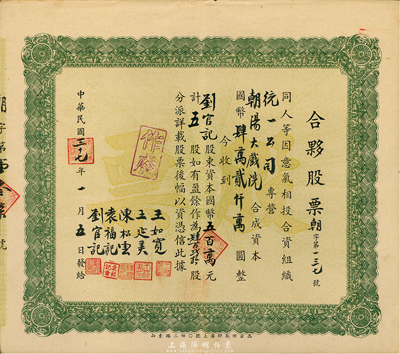 合夥股票
朝字第一三七號
同人等因意氣相投合資組織
統一公司專營
朝陽大戲院合成資本
國幣肆萬貳仟萬圓整
今收到
劉官記股東資本國幣五百萬元
計五股如有盈餘作為
股
分派詳載股票後幅以資憑信此據
作廢
中華民國三七年一月五日發給
王如寬
王廷美
陳松雲
袁福記
劉官記
朝字第
號